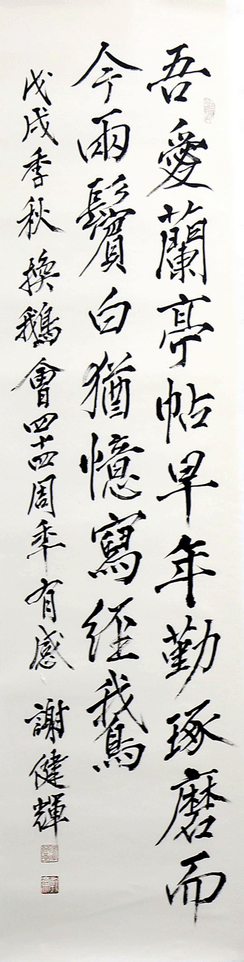 吾愛蘭亭帖早年勤琢磨而
今兩鬢白猶憶寫經鵞
戊戌季秋換鵝會四十四周年有感 謝健輝